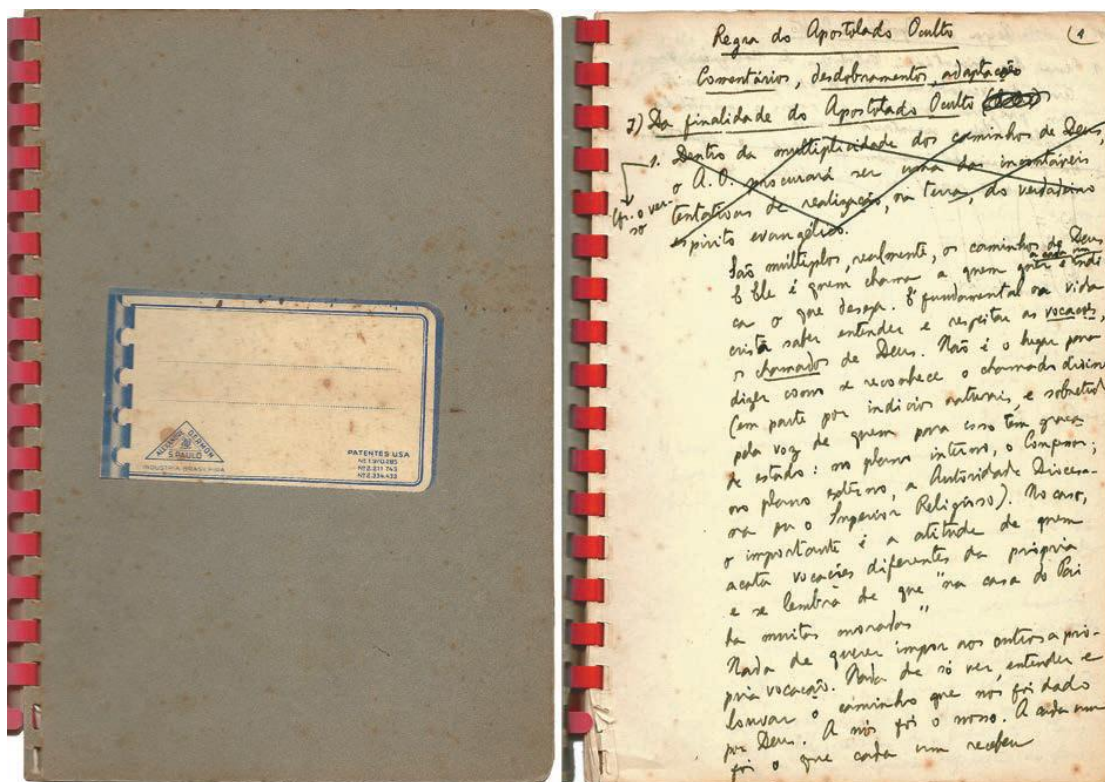 ALEXANDRE GERMON
S. PAULO
INDUSTRIA BRASILEIRA
PATENTES USA
Nº 1.970.285
Nº 2.211.745
Nº 2.234.432
Regra do Apostolado Oculto
1
Comentários, desdobramentos, adaptação
I) Da finalidade do Apostolado Oculto
1. Dentro da multiplicidade dos caminhos de Deus,
o A.O. procurará ser uma das incontáveis
tentativas de realização, na terra, do verdadeiro
espírito evangélico.
Cfr. o ver-
so
São múltiplos, realmente, os caminhos de Deus
E Ele é quem chama a quem quer e indi
a cada um
ca o que deseja. É fundamental na vida
cristã saber entender e respeitar as vocações,
os chamados de Deus. Não é o lugar para
dizer como se reconhece o chamado divino
(em parte por indícios naturais, e sobretudo
pela voz de quem para isso tem graça
de estado: no plano interno, o Confessor;
no plano externo, a Autoridade Diocesa-
na ou o Superior Religioso). No caso,
o importante é a atitude de quem
acata vocações diferentes da própria
e se lembra de que "na casa do Pai
ha muitas moradas"
Nada de querer impor aos outros a pró-
pria vocação. Nada de só ver, entender e
louvar o caminho que nos foi dado
por Deus. A nós foi o nosso. A cada um
foi o que cada um recebeu